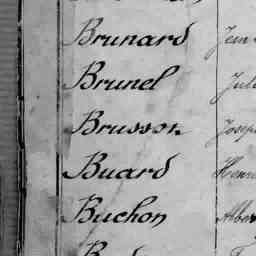 Brunard Jean
Brunel Jule
Brusson Joseph
Buard Henri
Buchon